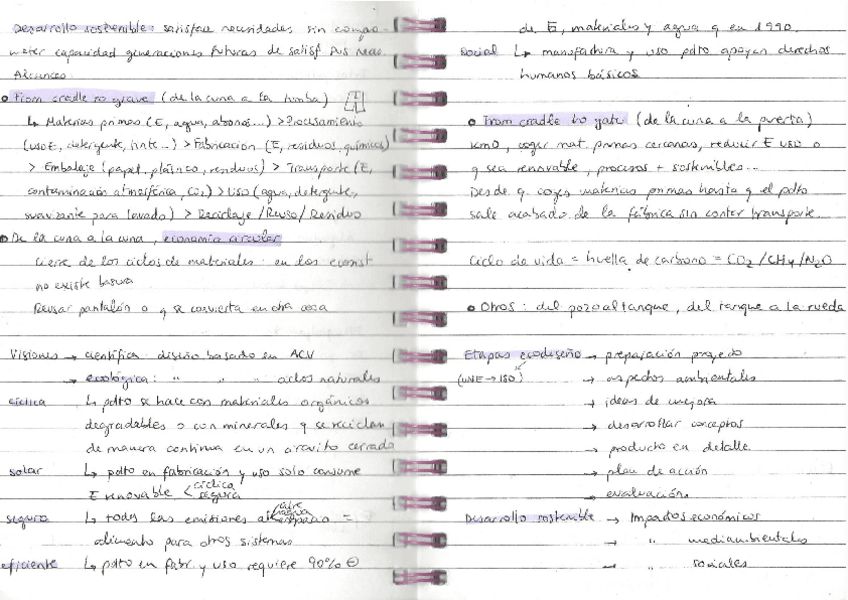 Desarrollo sostenible: satisface necesidades sin compro-
meter capacidad generaciones futuras de satisf sus nec.
Alcances
• From cradle to grave (de la cuna a la tumba)
↳ Materias primas (E, agua, abonos...) > Procesamiento
(uso E, detergente, tinte...) > Fabricación (E, residuos, químicos)
> Embalaje (papel, plástico, residuos) > Transporte (E,
contaminación atmosférica, CO2) > Uso (agua, detergente,
suavizante para lavado) > Reciclaje / Reuso / Residuo
• De la cuna a la cuna, economía circular
cierre de los ciclos de materiales: en los ecosist
no existe basura
Reusar pantalón o q se convierta en otra cosa
Visiones → científica: diseño basado en ACV
→ ecológica: " " " ciclos naturales
cíclica ↳ pdto se hace con materiales orgánicos
degradables o con minerales q se reciclan
de manera continua en un circuito cerrado
solar ↳ pdto en fabricación y uso solo consume
E renovable < cíclica segura
segura ↳ todas las emisiones al espacio =
aire
agua
alimento para otros sistemas
eficiente ↳ pdto en fabr. y uso requiere 90% ⊖
de E, materiales y agua q en 1990.
social ↳ manufactura y uso pdto apoyan derechos
humanos básicos
• From cradle to gate (de la cuna a la puerta)
km0, coger mat. primas cercanas, reducir E uso o
q sea renovable, procesos + sostenibles...
Desde q coges materias primas hasta q el pdto
sale acabado de la fábrica sin contar transporte.
Ciclo de vida = huella de carbono = CO2/CH4/N2O
• Otros: del pozo al tanque, del tanque a la rueda
Etapas ecodiseño → preparación proyecto
(UNE → ISO) → aspectos ambientales
→ ideas de mejora
→ desarrollar conceptos
→ producto en detalle
→ plan de acción
→ evaluación
Desarrollo sostenible → Impactos económicos
→ " medioambientales
→ " sociales